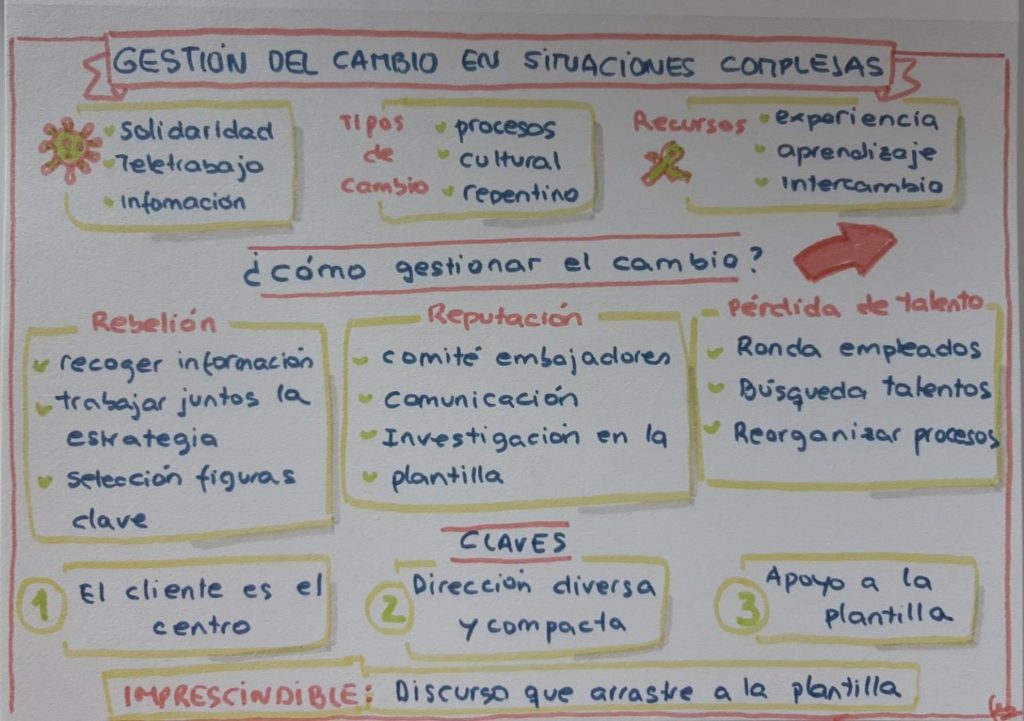 GESTIÓN DEL CAMBIO EN SITUACIONES COMPLEJAS
Solidaridad
Teletrabajo
Infomación
Tipos
de
cambio
procesos
cultural
repentino
Recursos
experiencia
aprendizaje
Intercambio
¿cómo gestionar el cambio?
Rebelión
recoger información
trabajar juntos la
estrategia
selección figuras
clave
Reputación
comité embajadores
comunicación
Investigación en la
plantilla
Pérdida de talento
Ronda empleados
Búsqueda talentos
Reorganizar procesos
CLAVES
1 El cliente es el
centro
2 Dirección diversa
y compacta
3 Apoyo a la
plantilla
IMPRESCINDIBLE: Discurso que arrastre a la plantilla